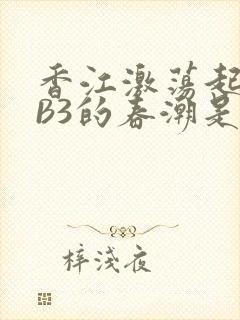 香江激荡起
B3的春潮是
梓浅夜